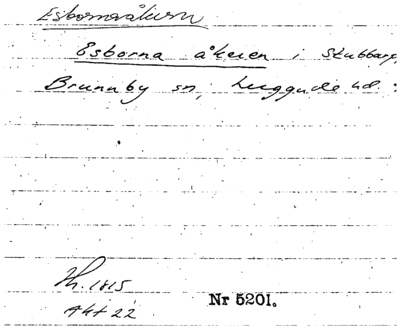 Esbornaåkern
Esborna åkeren i Stubbarp,
Brunnby sn, Luggude hd.:
Th. 1815
akt 22
Nr 5201.